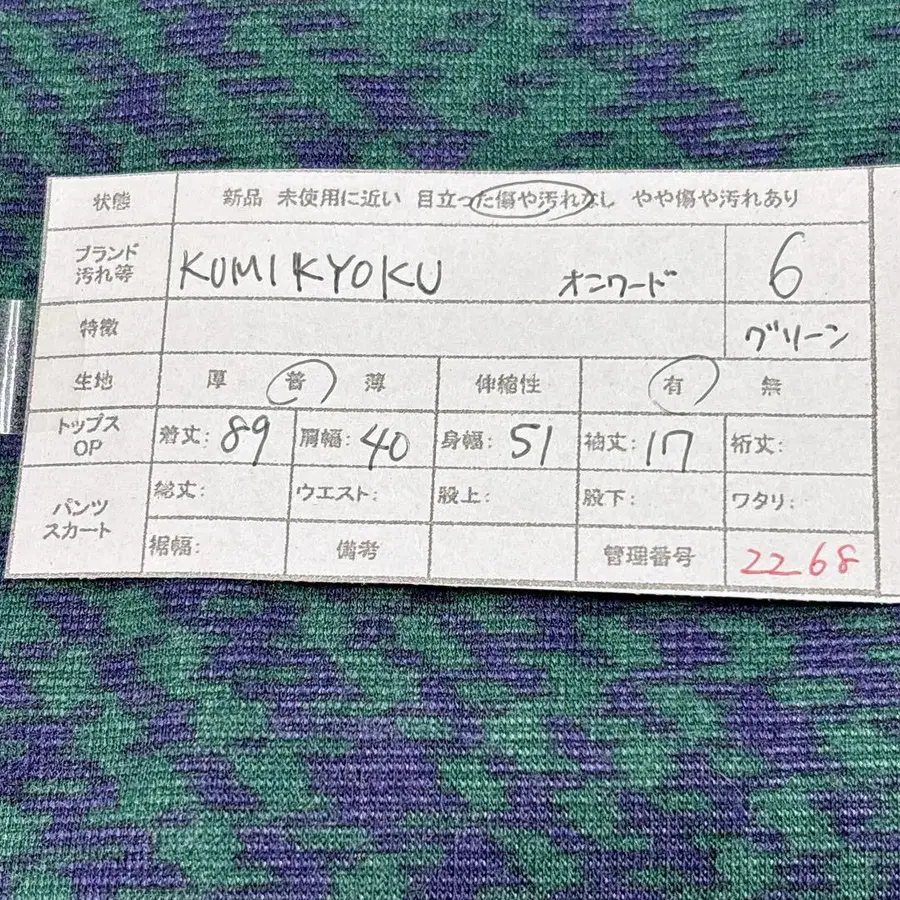 状態 新品 未使用に近い 目立った傷や汚れなし やや傷や汚れあり
ブランド 汚れ等 KUMIKYOKU オニワード 6
特徴 グリーン
生地 厚 普 薄 伸縮性 有 無
トップス OP 着丈: 89 肩幅: 40 身幅: 51 袖丈: 17 裄丈:
パンツ スカート 総丈: ウエスト: 股上: 股下: ワタリ:
裾幅: 備考 管理番号 2268